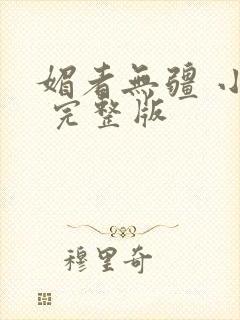 媚者無疆 小
完整版
穆里奇